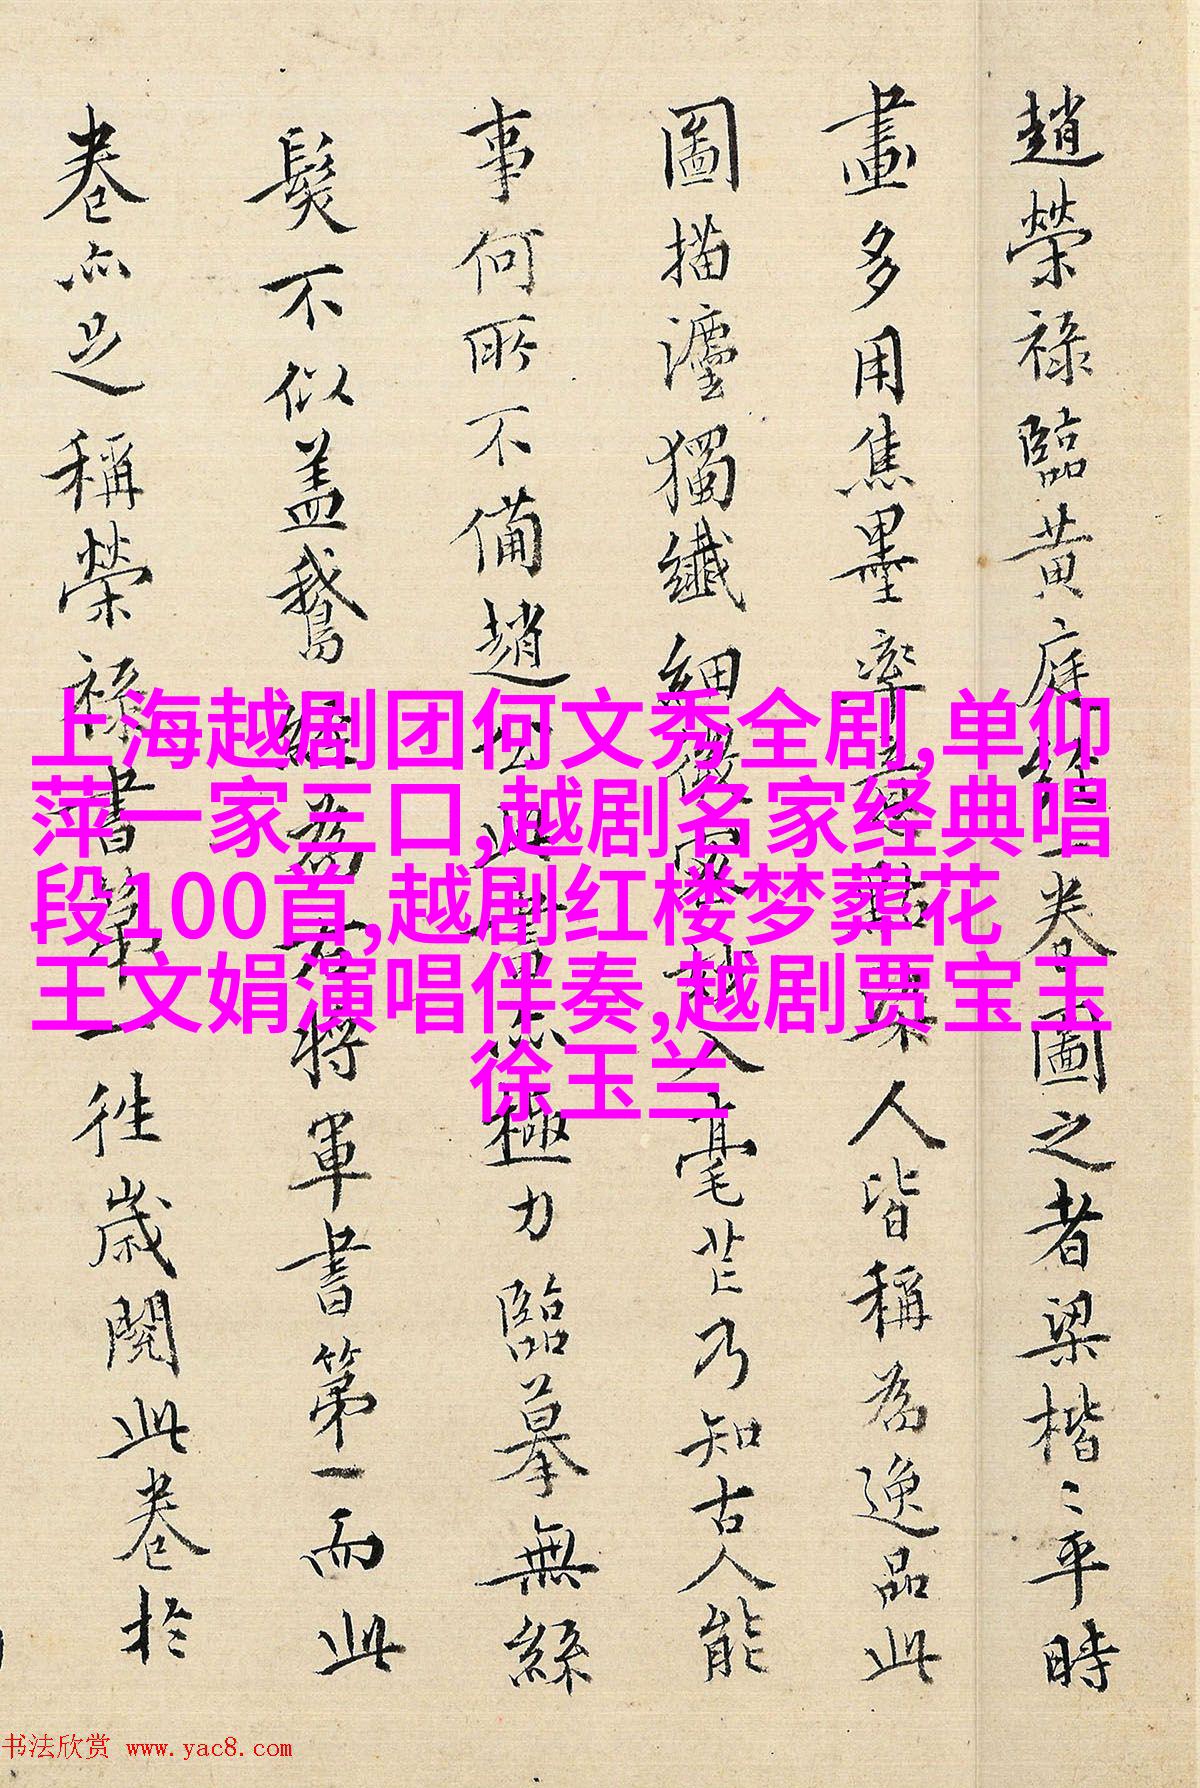 趙榮祿臨黃庭經一卷圖之者梁楷〻平時
畫多用焦墨率意點染人皆稱為逸品此
圖描灋獨纖細微入毫芒乃知古人能
事何所不備趙公此書亦極力臨摹無絲
髮不似蓋鵞經為右將軍書第一而此
卷亦足稱榮祿書第一往歲閱此卷於
上海越剧团何文秀全剧,单仰
萍一家三口,越剧名家经典唱
段100首,越剧红楼梦葬花
王文娟演唱伴奏,越剧贾宝玉
徐玉兰
书法欣赏 www.yac8.com